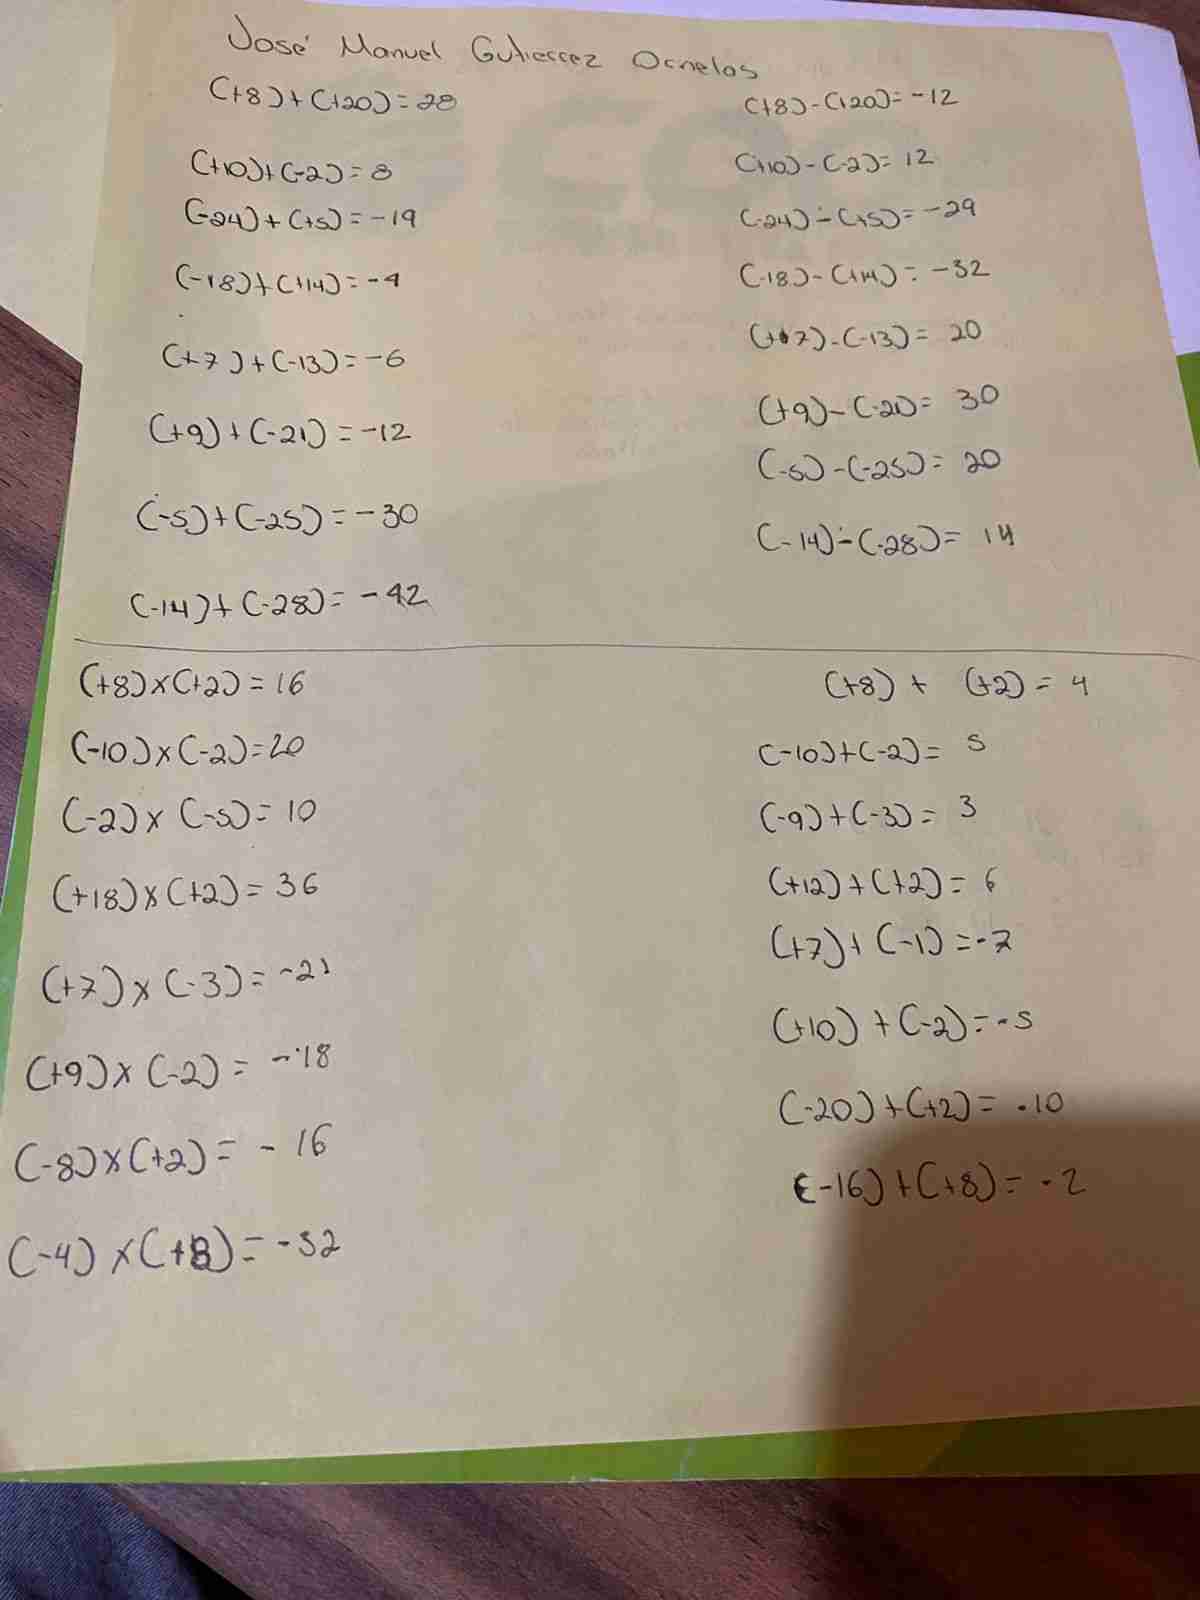 José Manuel Gutierrez Ornelas
(+8)+(+20)=28
(+10)+(-2)=8
(-24)+(+5)=-19
(-18)+(+14)=-4
(+7)+(-13)=-6
(+9)+(-21)=-12
(-5)+(-25)=-30
(-14)+(-28)=-42
(+8)-(+20)=-12
(+10)-(-2)=12
(-24)-(+5)=-29
(-18)-(+14)=-32
(+7)-(-13)=20
(+9)-(-21)=30
(-5)-(-25)=20
(-14)-(-28)=14
(+8)x(+2)=16
(-10)x(-2)=20
(-2)x(-5)=10
(+18)x(+2)=36
(+7)x(-3)=-21
(+9)x(-2)=-18
(-8)x(+2)=-16
(-4)x(+8)=-32
(+8)+(+2)=4
(-10)+(-2)=5
(-9)+(-3)=3
(+12)+(+2)=6
(+7)+(-1)=-7
(+10)+(-2)=-5
(-20)+(+2)=-10
(-16)+(+8)=-2